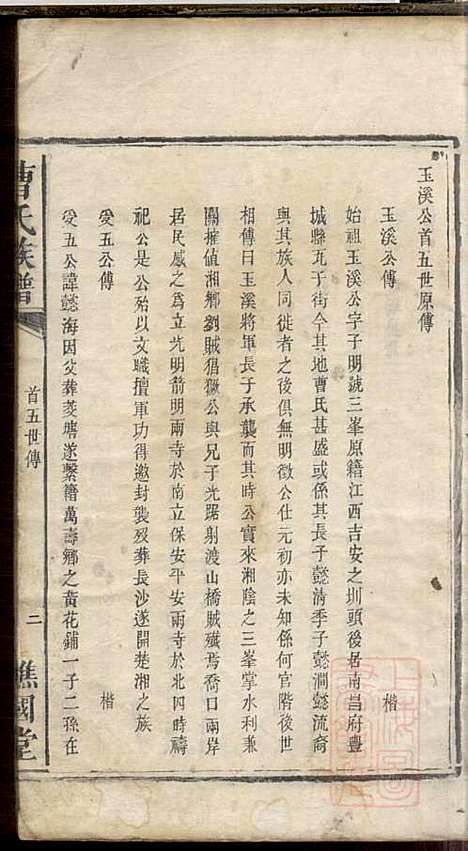 玉溪公首五世原傳
玉溪公傳　楷
始祖玉溪公字子明號三峯原籍江西吉安之圳頭後居南昌府豐
城縣瓦子街今其地曹氏甚盛或係其長子懿清季子懿澗懿流裔
與其族人同徙者之後俱無明徵公仕元初亦未知係何官階後世
相傳曰玉溪將軍長子承襲而其時公實來湘陰之三峯掌水利兼
關摧值湘鄉劉賊猖獗公與兄子光曙射渡山橋賊殲焉喬口兩岸
居民感之爲立光明箭明兩寺於南立保安平安兩寺於北四時禱
祀公是公殆以文職擅軍功得邀封襲歿葬長沙遂開楚湘之族
受五公傳　楷
受五公諱懿海因父葬菱塘遂繫籍萬壽鄉之黃花鋪一子二孫在
曹氏族譜
首五世傳
二
譙國堂